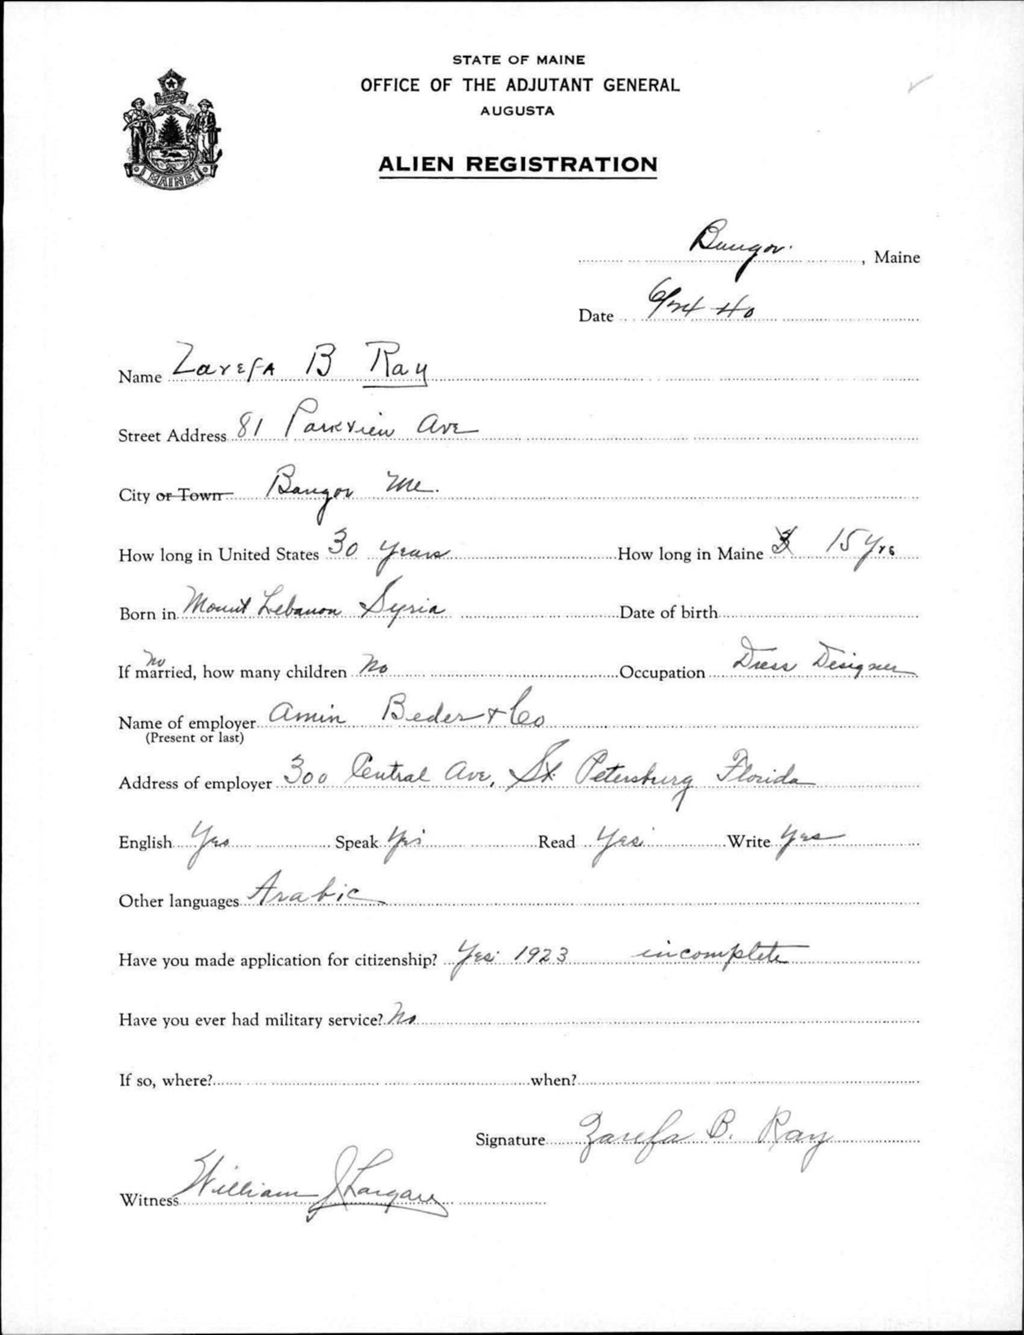 STATE OF MAINE
OFFICE OF THE ADJUTANT GENERAL
AUGUSTA
MAINE
ALIEN REGISTRATION
Bangor, Maine
Date 6/24 40
Name Zarefa B Ray
Street Address 81 Parkview Ave
City or Town Bangor Me.
How long in United States 30 years How long in Maine 15 Yrs
Born in Mount Lebanon Syria Date of birth
No
If married, how many children No Occupation Dress Designer
Name of employer Amin Beder & Co
(Present or last)
Address of employer 300 Central Ave, St. Petersburg Florida
English Yes Speak Yes Read Yes Write Yes
Other languages Arabic
Have you made application for citizenship? Yes 1923 incomplete
Have you ever had military service? No
If so, where? when?
Signature Zarefa B. Ray
Witness William J